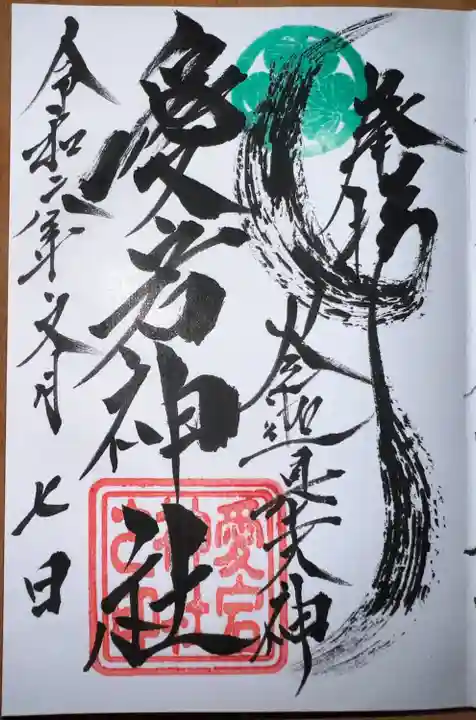 奉拝
大神
愛宕神社
令和二年文月 七日
愛宕
神社
之印